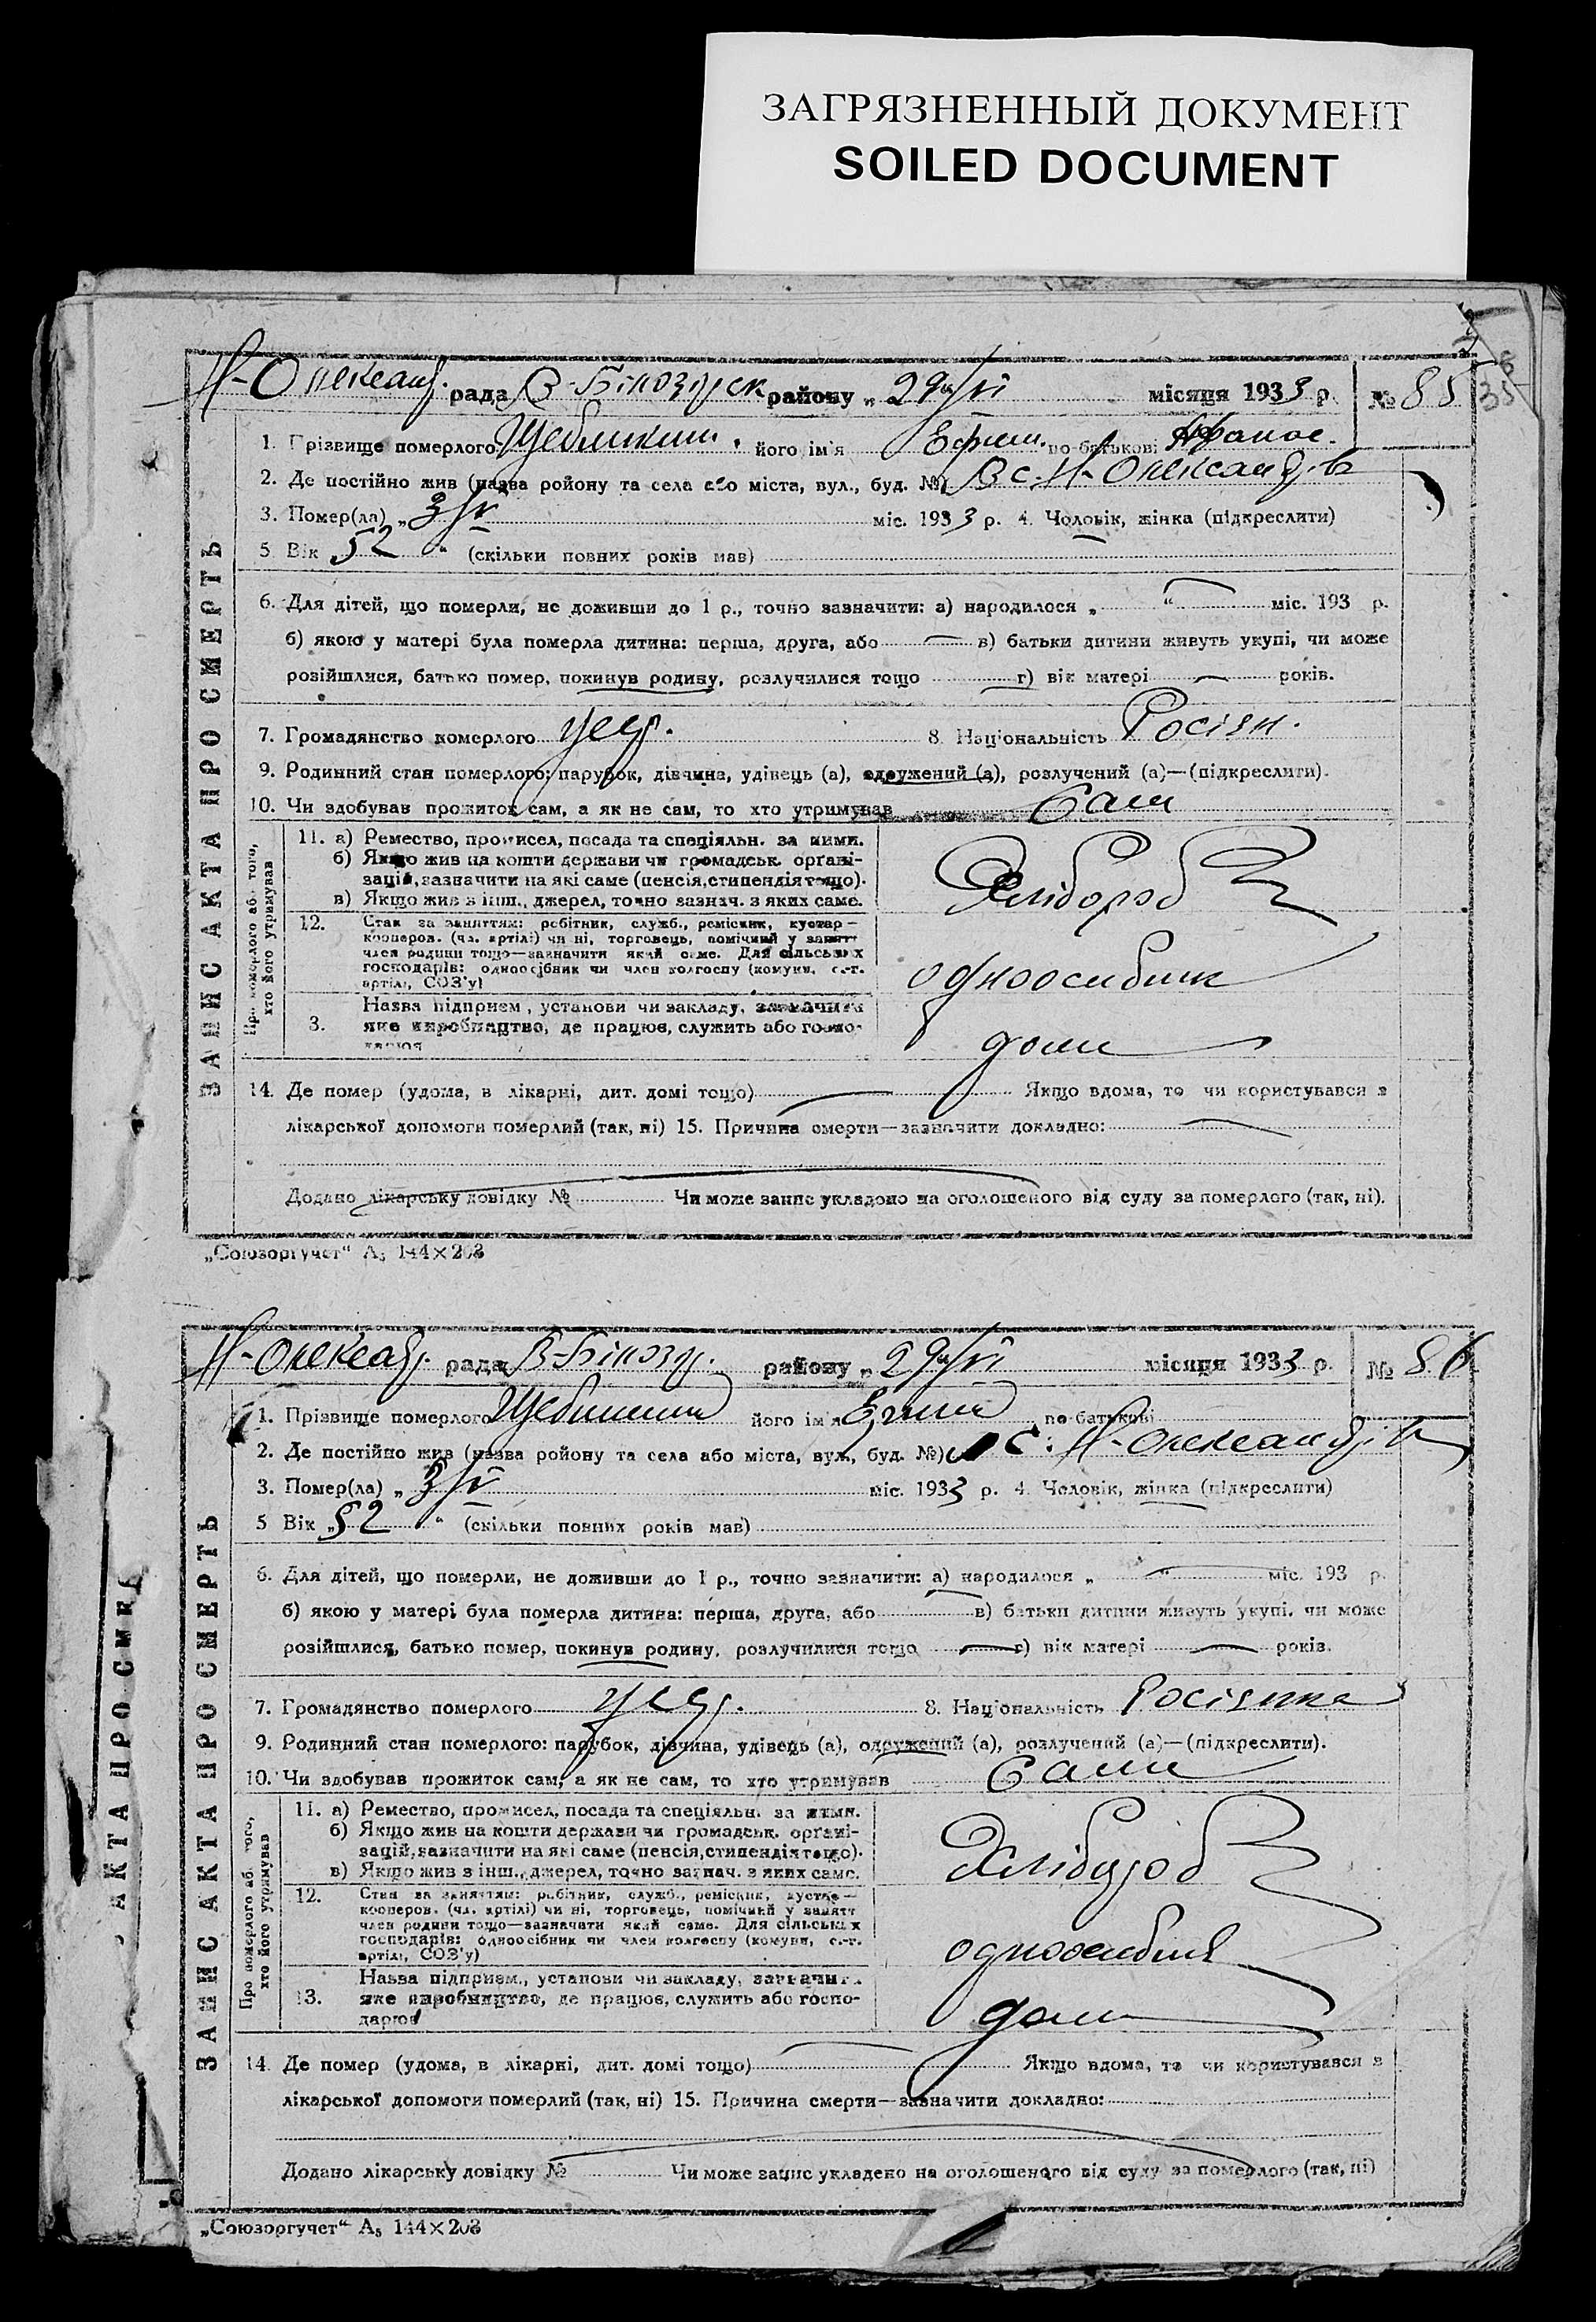 ЗАГРЯЗНЕННЫЙ ДОКУМЕНТ
SOILED DOCUMENT
Н-Олександ. рада В-Білозірск району „ 29/VI місяця 1933 р. № 85
1. Прізвище померлого його ім'я Ефим. по-батькові Афанас.
2. Де постійно жив (назва району та села або міста, вул., буд. №) В с. Н-Олександрів
3. Помер(ла) „ 3/V міс. 1933 р. 4. Чоловік, жінка (підкреслити)
5 Вік „52“ (скільки повних років мав)
6. Для дітей, що померли, не доживши до 1 р., точно зазначити: а) народилося „ “ міс. 193 р.
б) якою у матері була померла дитина: перша, друга, або в) батьки дитини живуть укупі, чи може
розійшлися, батько помер, покинув родину, розлучилися тощо г) вік матері років.
7. Громадянство померлого 8. Національність Росіян.
9. Родинний стан померлого: парубок, дівчина, удівець (а), одружений (а), розлучений (а)—(підкреслити).
10. Чи здобував прожиток сам, а як не сам, то хто утримував Сам
Про померлого або того, хто його утримував
11. а) Ремество, промисел, посада та спеціяльн. за ними.
б) Якщо жив на кошти держави чи громадськ. органі-
зацій, зазначити на які саме (пенсія, стипендія тощо).
в) Якщо жив з інш., джерел, точно зазнач. з яких саме.
Хлібороб
12. Стан за заняттям: робітник, служб., ремісник, кустар—
кооперов. (чл. артілі) чи ні, торговець, помічний у занятт
член родини тощо—зазначити який саме. Для сільських
господарів: одноосібник чи член колгоспу (комуни, с.-г.
артілі, СОЗ'у)
одноосибник
3. Назва підприєм., установи чи закладу, зазначити
яке виробництво, де працює, служить або госпо-
дарює
дома
14. Де помер (удома, в лікарні, дит. домі тощо) Якщо вдома, то чи користувався з
лікарської допомоги померлий (так, ні) 15. Причина смерти—зазначити докладно:
Додано лікарську довідку № Чи може запис укладено на оголошеного від суду за померлого (так, ні).
ЗАПИС АКТА ПРО СМЕРТЬ
„Союзоргучет“ А5 144×203
Н-Олександ. рада В-Білозір. району „ 29/VI місяця 1933 р. № 86
1. Прізвище померлого його ім'я по-батькові
2. Де постійно жив (назва району та села або міста, вул., буд. №) с. Н-Олександрів
3. Помер(ла) „ 3/V міс. 1933 р. 4. Чоловік, жінка (підкреслити)
5 Вік „52“ (скільки повних років мав)
6. Для дітей, що померли, не доживши до 1 р., точно зазначити: а) народилося „ “ міс. 193 р.
б) якою у матері була померла дитина: перша, друга, або в) батьки дитини живуть укупі, чи може
розійшлися, батько помер, покинув родину, розлучилися тощо г) вік матері років.
7. Громадянство померлого 8. Національність Росіянка
9. Родинний стан померлого: парубок, дівчина, удівець (а), одружений (а), розлучений (а)—(підкреслити).
10. Чи здобував прожиток сам, а як не сам, то хто утримував Сама
Про померлого або того, хто його утримував
11. а) Ремество, промисел, посада та спеціяльн. за ними.
б) Якщо жив на кошти держави чи громадськ. органі-
зацій, зазначити на які саме (пенсія, стипендія тощо).
в) Якщо жив з інш., джерел, точно зазнач. з яких саме.
Хлібороб
12. Стан за заняттям: робітник, служб., ремісник, кустар—
кооперов. (чл. артілі) чи ні, торговець, помічний у занятт
член родини тощо—зазначити який саме. Для сільських
господарів: одноосібник чи член колгоспу (комуни, с.-г.
артілі, СОЗ'у)
13. Назва підприєм., установи чи закладу, зазначити
яке виробництво, де працює, служить або госпо-
дарює
дома
14. Де помер (удома, в лікарні, дит. домі тощо) Якщо вдома, то чи користувався з
лікарської допомоги померлий (так, ні) 15. Причина смерти—зазначити докладно:
Додано лікарську довідку № Чи може запис укладено на оголошеного від суду за померлого (так, ні)
ЗАПИС АКТА ПРО СМЕРТЬ
АКТА ПРО СМЕР
„Союзоргучет“ А5 144×203